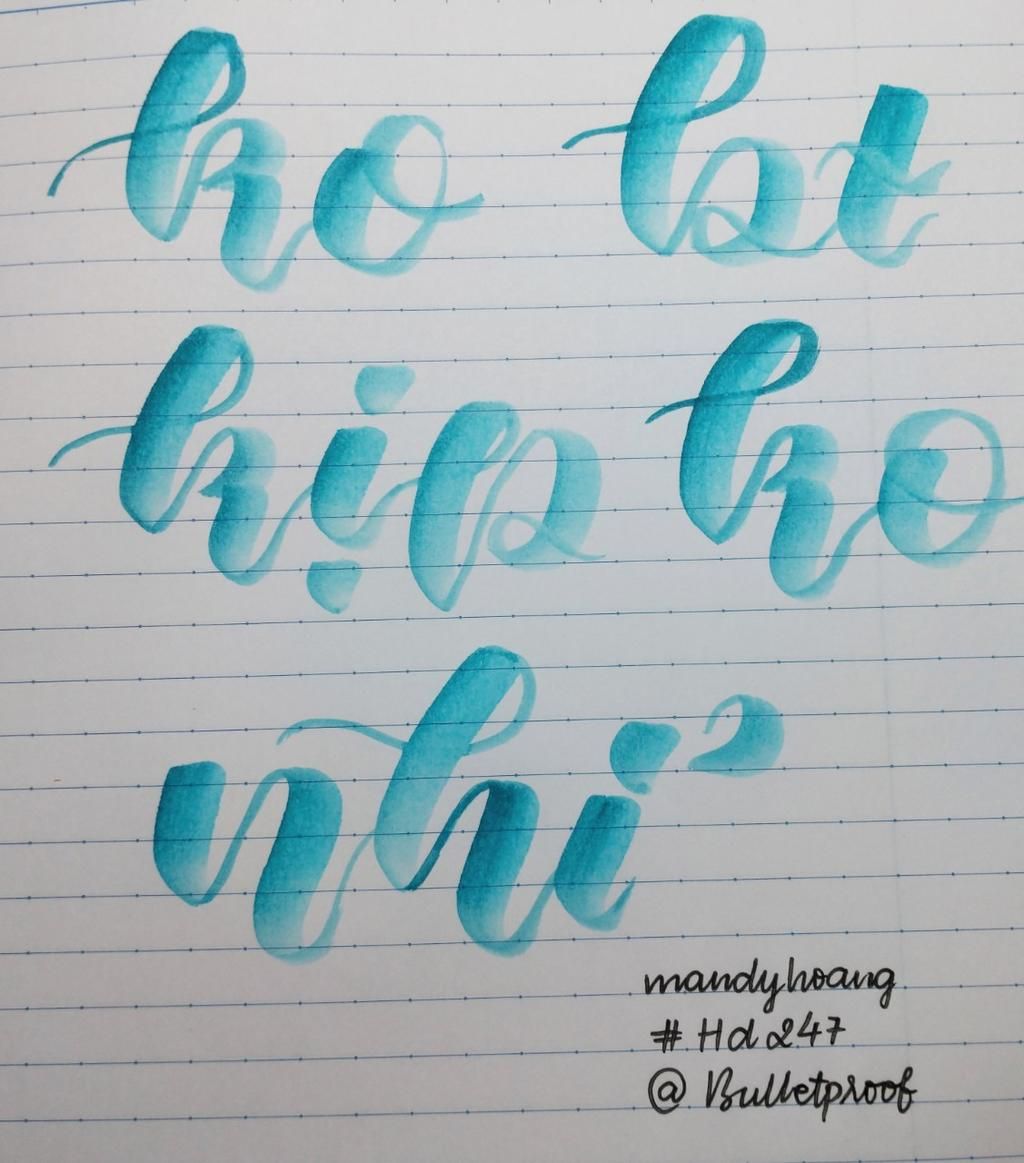 ko bt
kịp ko
nhi²
mandyhoang
# Hd 247
@ Bulletproof